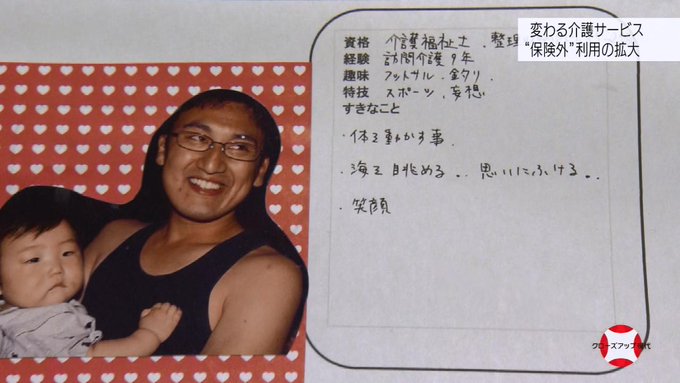 変わる介護サービス
“保険外”利用の拡大
資格 介護福祉士、整理
経験 訪問介護9年
趣味 フットサル、釣り、
特技 スポーツ、妄想
すきなこと
・体を動かす事。
・海を眺める。。思いにふける。。
・笑顔
クローズアップ現代